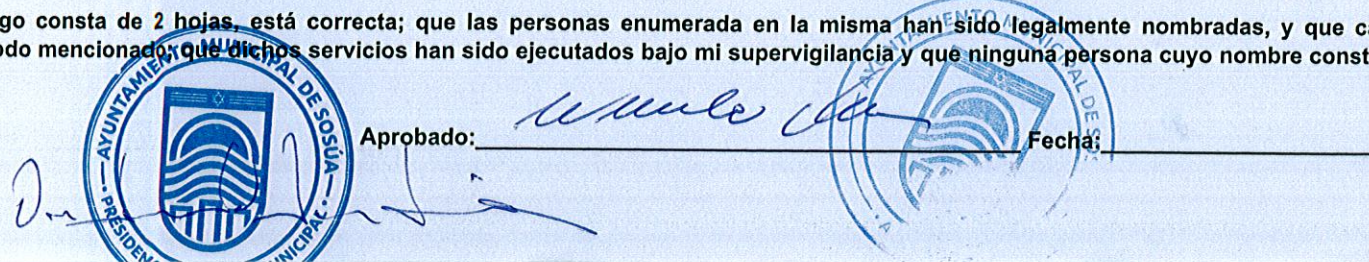 go consta de 2 hojas, está correcta; que las personas enumerada en la misma han sido legalmente nombradas, y que c
odo mencionado; que dichos servicios han sido ejecutados bajo mi supervigilancia y que ninguna persona cuyo nombre const
AYUNTAMIENTO MUNICIPAL DE SOSÚA
AYUNTAMIENTO MUNICIPAL DE
Aprobado:
Fecha: